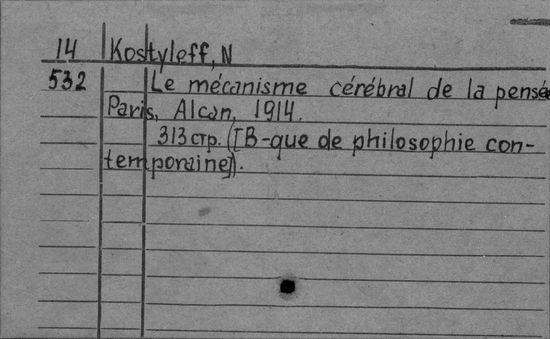 14 Kostyleff, N
532 Le mécanisme cérébral de la pensée
Paris, Alcan, 1914.
313 стр. (B-que de philosophie con-
temporaine).